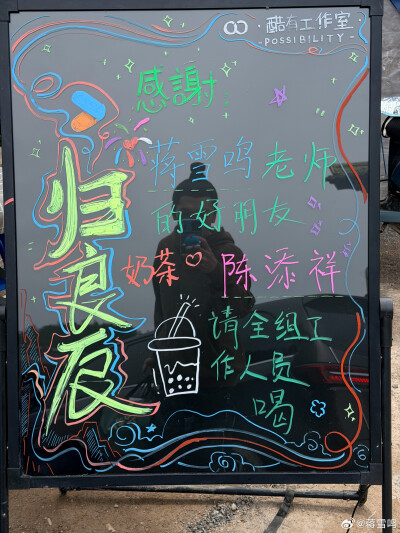 酷有工作室
POSSIBILITY
感謝:
蒋雪鸣老师
的好朋友
奶茶 陈添祥
请全组工
作人员
喝
归良辰
@蒋雪鸣